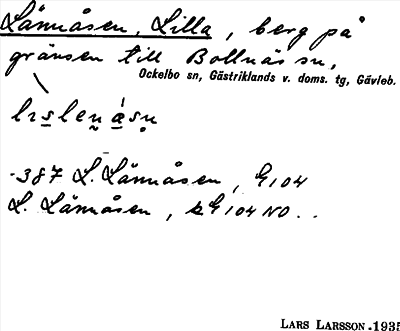 Lännåsen, Lilla, berg på
gränsen till Bollnäs sn,
Ockelbo sn, Gästriklands v. doms. tg, Gävleb.
-387 L. Lännåsen, G104
L. Lännåsen, G104 NO..
LARS LARSSON. 1935